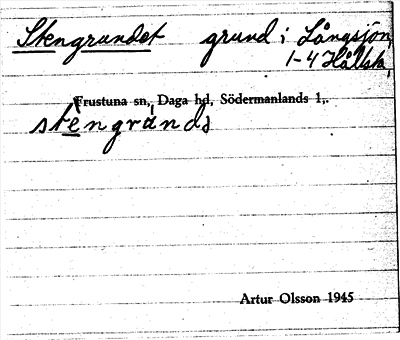 Stengrundet grund i Långsjön,
1-4 Hålsta,
Frustuna sn, Daga hd, Södermanlands l,.
Artur Olsson 1945